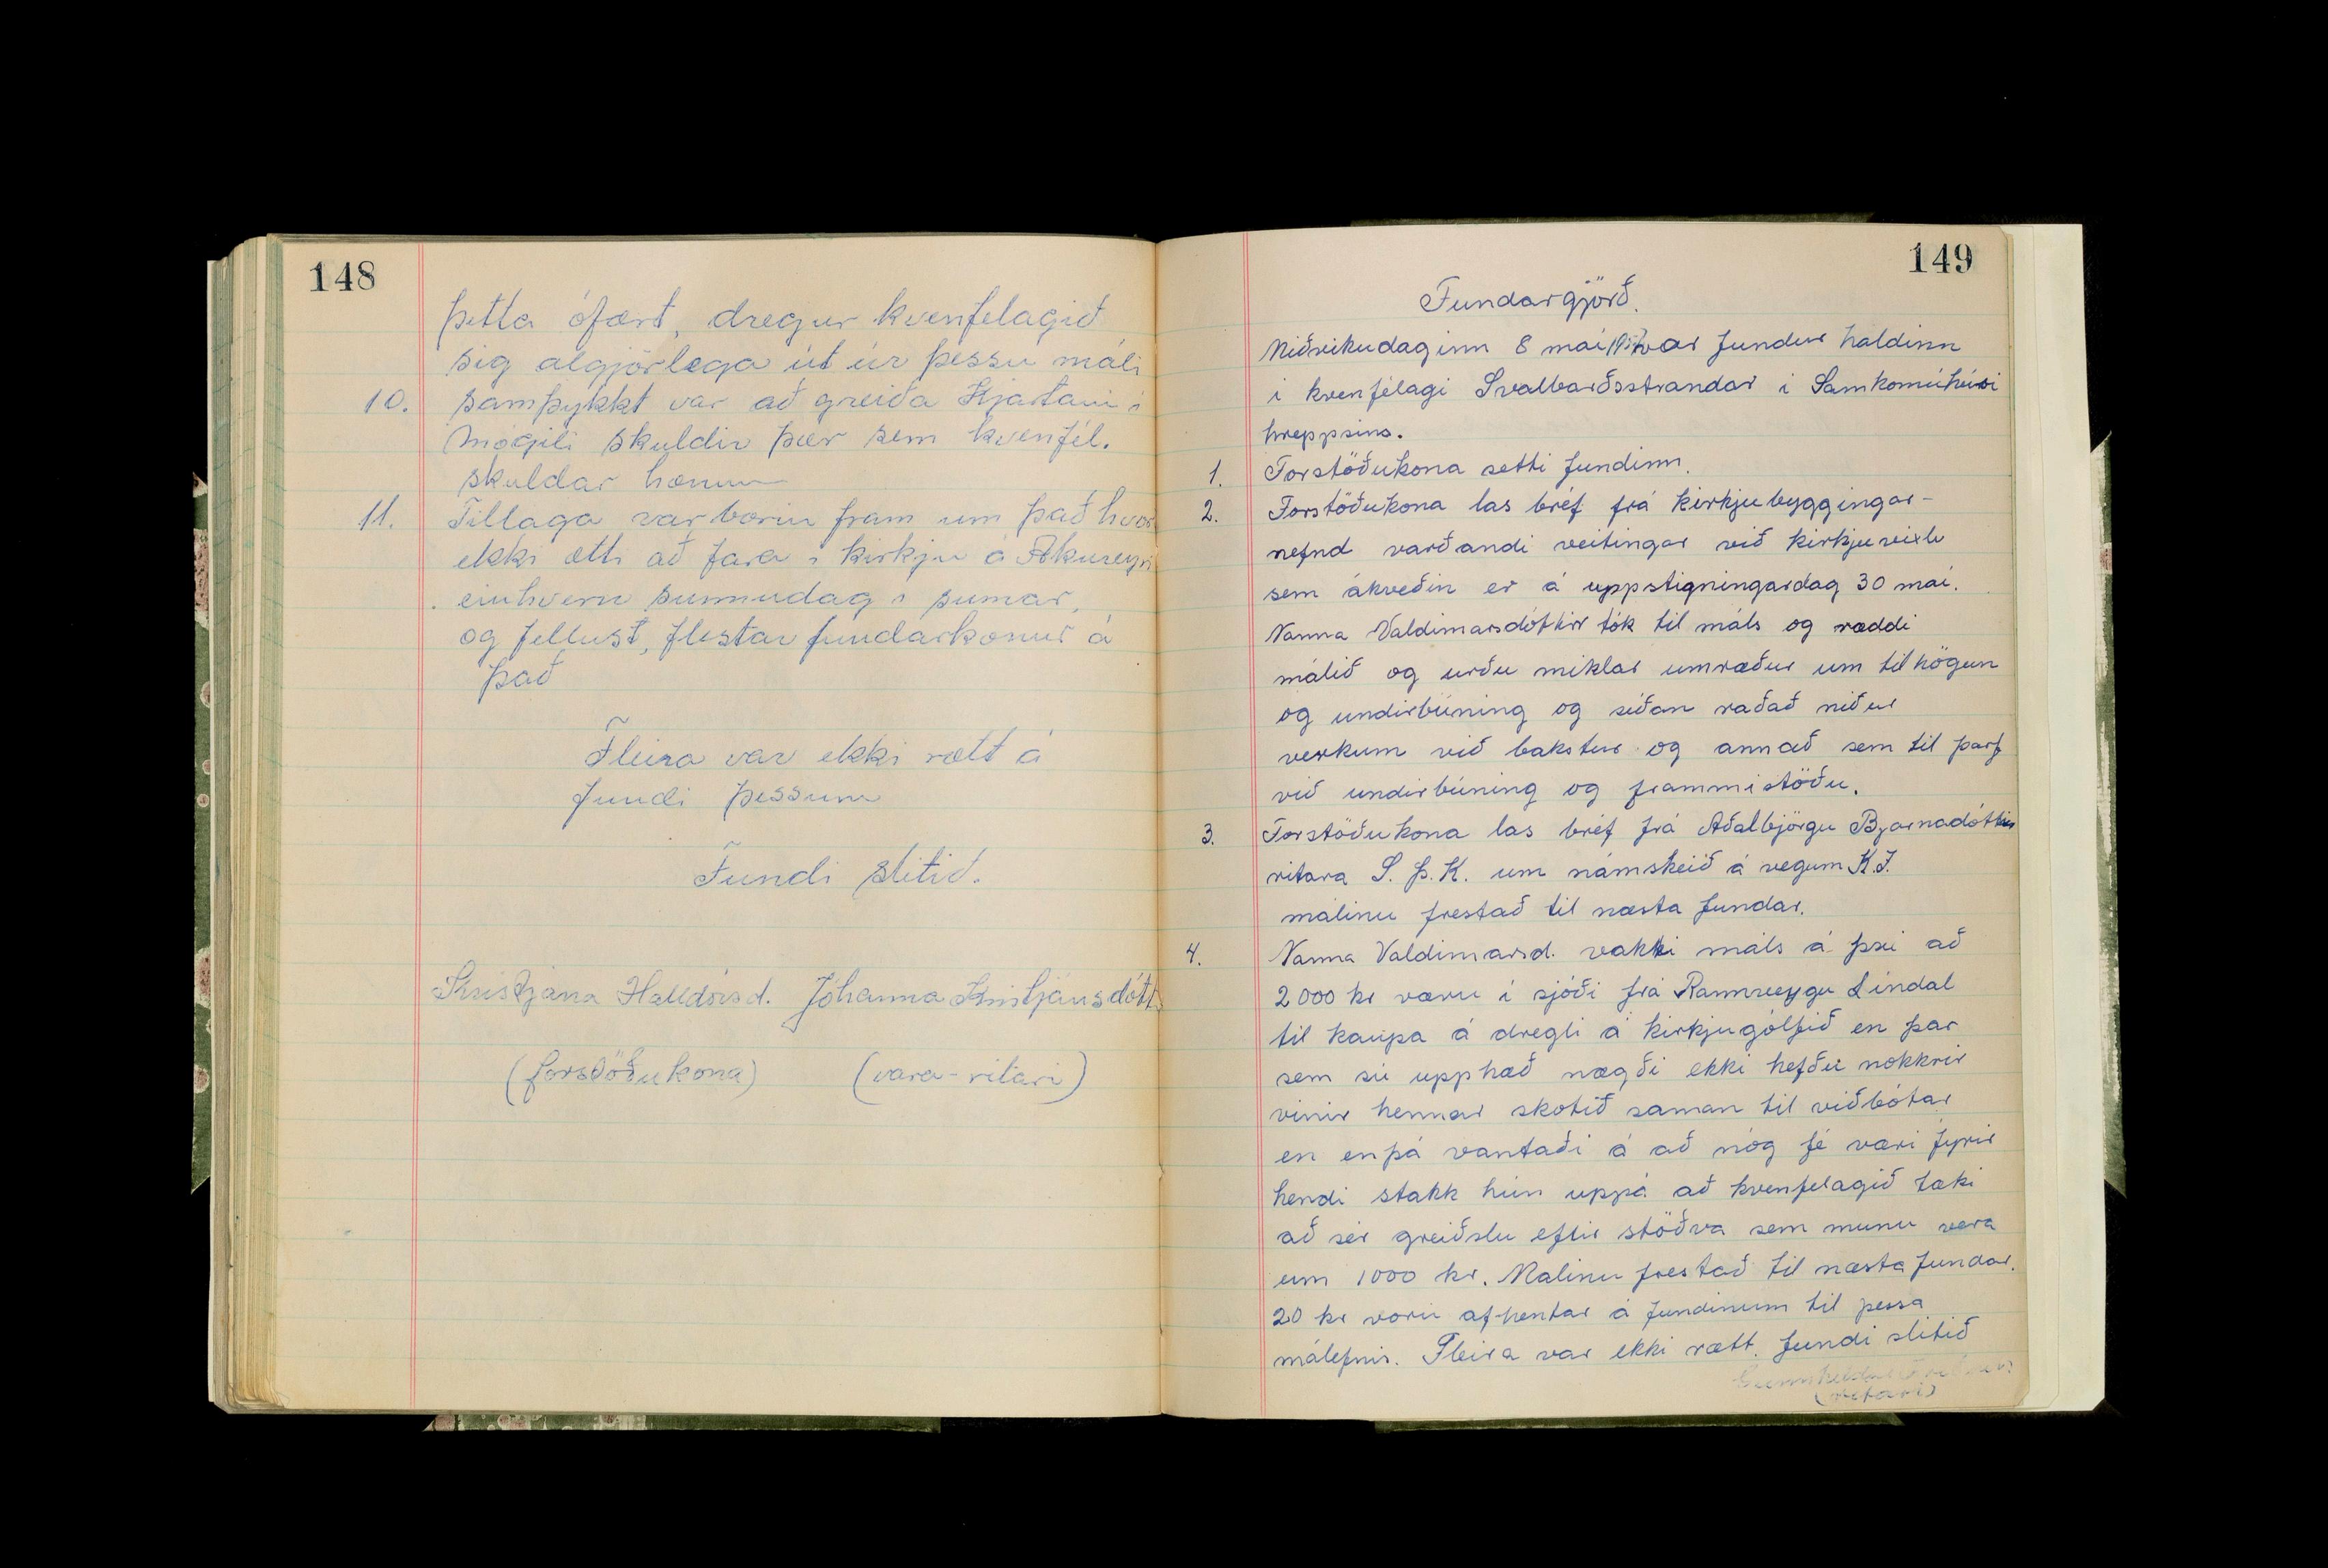 148
þetta ófært, dregur kvenfelagið
sig algjörlega út úr þessu máli
10. samþykkt var að greiða Kjartani í
Mógili skuldir þær sem kvenfél.
skuldar honum
11. Tillaga var borin fram um það hvor
ekki ætti að fara í kirkju á Akureyri
einhvern sunnudag í sumar,
og fellust, flestar fundarkonur á
það
Fleira var ekki rætt á
fundi þessum
Fundi slitið.
Kristjana Halldórsd. Jóhanna Kristjánsdótt.
(forstöðukona) (vara-ritari)
149
Fundargjörð.
Miðvikudaginn 8 maí 1957 var fundur haldinn
í kvenfélagi Svalbarðsstrandar í Samkomúhúsi
hreppsins.
1. Forstöðukona setti fundinn.
2. Forstöðukona las bréf frá kirkjubyggingar-
nefnd varðandi veitingar við kirkjuvixlu
sem ákveðin er á uppstigningardag 30 maí.
Nanna Valdimarsdóttir tók til máls og ræddi
málið og urðu miklar umræður um tilhögun
og undirbúning og síðan raðað niður
verkum við bakstur og annað sem til þarf
við undirbúning og frammistöðu.
3. Forstöðukona las bréf frá Aðalbjörgu Bjarnadóttir
ritara S. Þ. K. um námskeið á vegum K.Í.
málinu frestað til næsta fundar.
4. Nanna Valdimarsd. vakti máls á því að
2000 kr væru í sjóði frá Rannveygu Líndal
til kaupa á dregli á kirkjugólfið en þar
sem sú upphæð nægði ekki hefðu nokkrir
vinir hennar skotið saman til viðbótar
en enþá vantaði á að nóg fé væri fyrir
hendi stakk hún uppá að kvenfelagið tæki
að sér greiðslu eftir stöðva sem munu vera
um 1000 kr. Malinu frestað til næsta fundar.
20 kr voru afhentar á fundinum til þessa
málefnis. Fleira var ekki rætt. fundi slitið
(ritari)